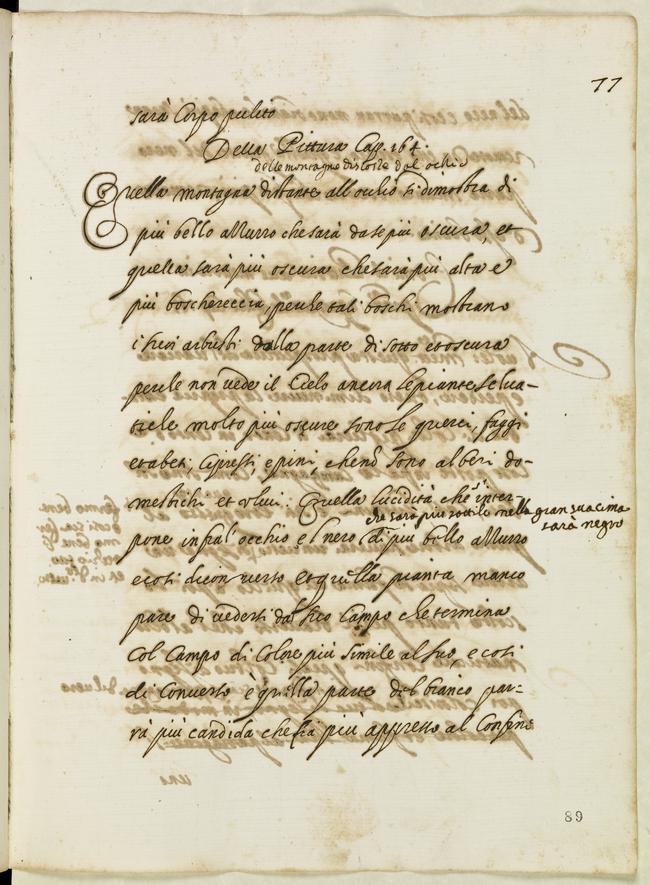 77
sarà Corpo pulito
Della Pittura Cap. 164.
delle montagne distoste dal ochio
Quella montagna distante all occhio si dimostra di
più bello azzurro che sarà da se più oscura, et
quella sarà più oscura che sarà più alta e
più boschereccia, perche tali boschi mostrano
i suoi arbusti dalla parte di sotto et oscura
perche non vede il Cielo ancora le piante selua-
tiche molto più oscure sono le querci, faggi
et abeti, cipressi, e pini, che nō sono alberi do-
mestichi et vliui. Quella lucidità che s'inter
che sara più sottile nella gran sua cima
sarà negro
pone infra l' occhio e 'l nero di più bello azzurro
e cosi di conuerso et quella pianta manco
pare di uedersi dal suo Campo che termina
Col Campo di Colore più simile al suo, e cosi
di Conuerso e quella parte del bianco par-
rà più candida che sia più appresso al Confine
uno
89